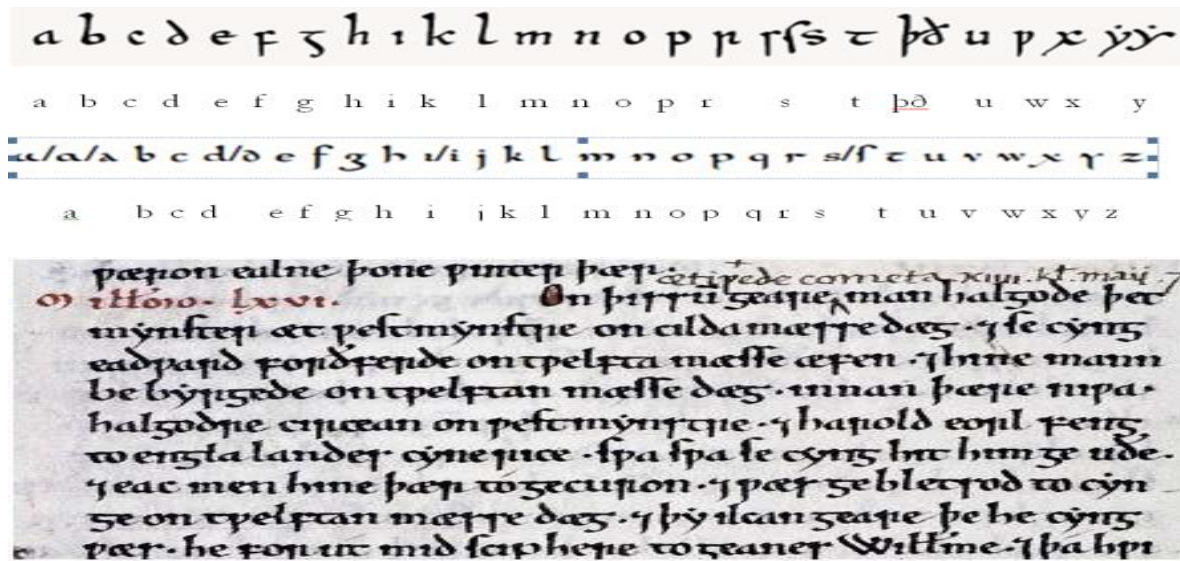 a b c d e f g h ı k l m n o p r s ſ s t þ ð u ƿ x ẏ ẏ
a b c d e f g h i k l m n o p r s t þð u w x y
a/a/a b c d/d e f g h ı/i j k l m n o p q r s/ſ t u v w x y z
a b c d e f g h i j k l m n o p q r s t u v w x y z
ƿæron ealne þone ƿinter þær. ætiƿede cometa xiiii. kł. maii ⁊
M illo'io. lxvi. On þissũ geare man halgode þet
mẏnster æt ƿestmẏnstre on cildamæsse dæg. ⁊ se cẏng
eadƿard forðferde on tƿelfta mæsse æfen. ⁊ hine mann
be bẏrgede on tƿelftan mæsse dæg. innan þære niƿa.
halgodre circean on ƿestmẏnstre. ⁊ harold eorl feng
to englalandes cẏnerice. sƿa sƿa se cẏng hit him ge uðe.
⁊ eac men hine þær to gecuron. ⁊ ƿæs gebletsod to cẏn
ge on tƿelftan mæsse dæg. ⁊ þẏ ilcan geare þe he cẏng
ƿæs. he for ut mid sciphere togeanes Willme. ⁊ þa hƿi